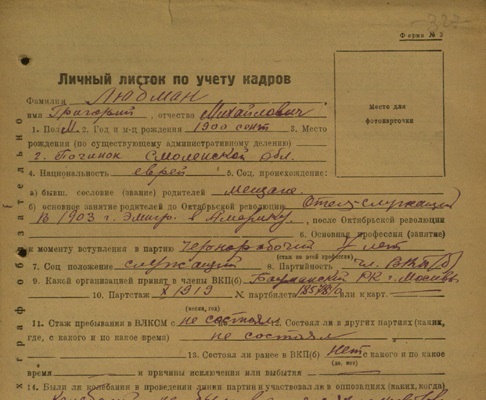 322
Форма № 3
Личный листок по учету кадров
Место для
фотокарточки
Фамилия Любман
имя Григорий, отчество Михайлович
1. Пол М. 2. Год и м-ц рождения 1900 сент 3. Место
рождения (по существующему административному делению)
г. Починок Смоленской обл.
4. Национальность еврей 5. Соц. происхождение:
а) бывш. сословие (звание) родителей мещане.
б) основное занятие родителей до Октябрьской революции Отец-служащий
В 1903 г. эмигр. в Америку, после Октябрьской революции
6. Основная профессия (занятие)
к моменту вступления в партию чернорабочий лет
(стаж за этой профессией)
7. Соц положение служащий 8. Партийность чл. ВКП(б)
9. Какой организацией принят в члены ВКП(б) Бауманский РК г. Москвы
10. Партстаж X 1919 № партбилета или к карт.
(месяц, год)
11. Стаж пребывания в ВЛКСМ не состоял Состоял ли в других партиях (каких,
где, с какого и по какое время) не состоял
13. Состоял ли ранее в ВКП(б) Нет с какого и по какое
(да, нет)
время и причины исключения или выбытия
14. Были ли колебания в проведении линии партии и участвовал ли в оппозициях (каких, когда)
обязательно